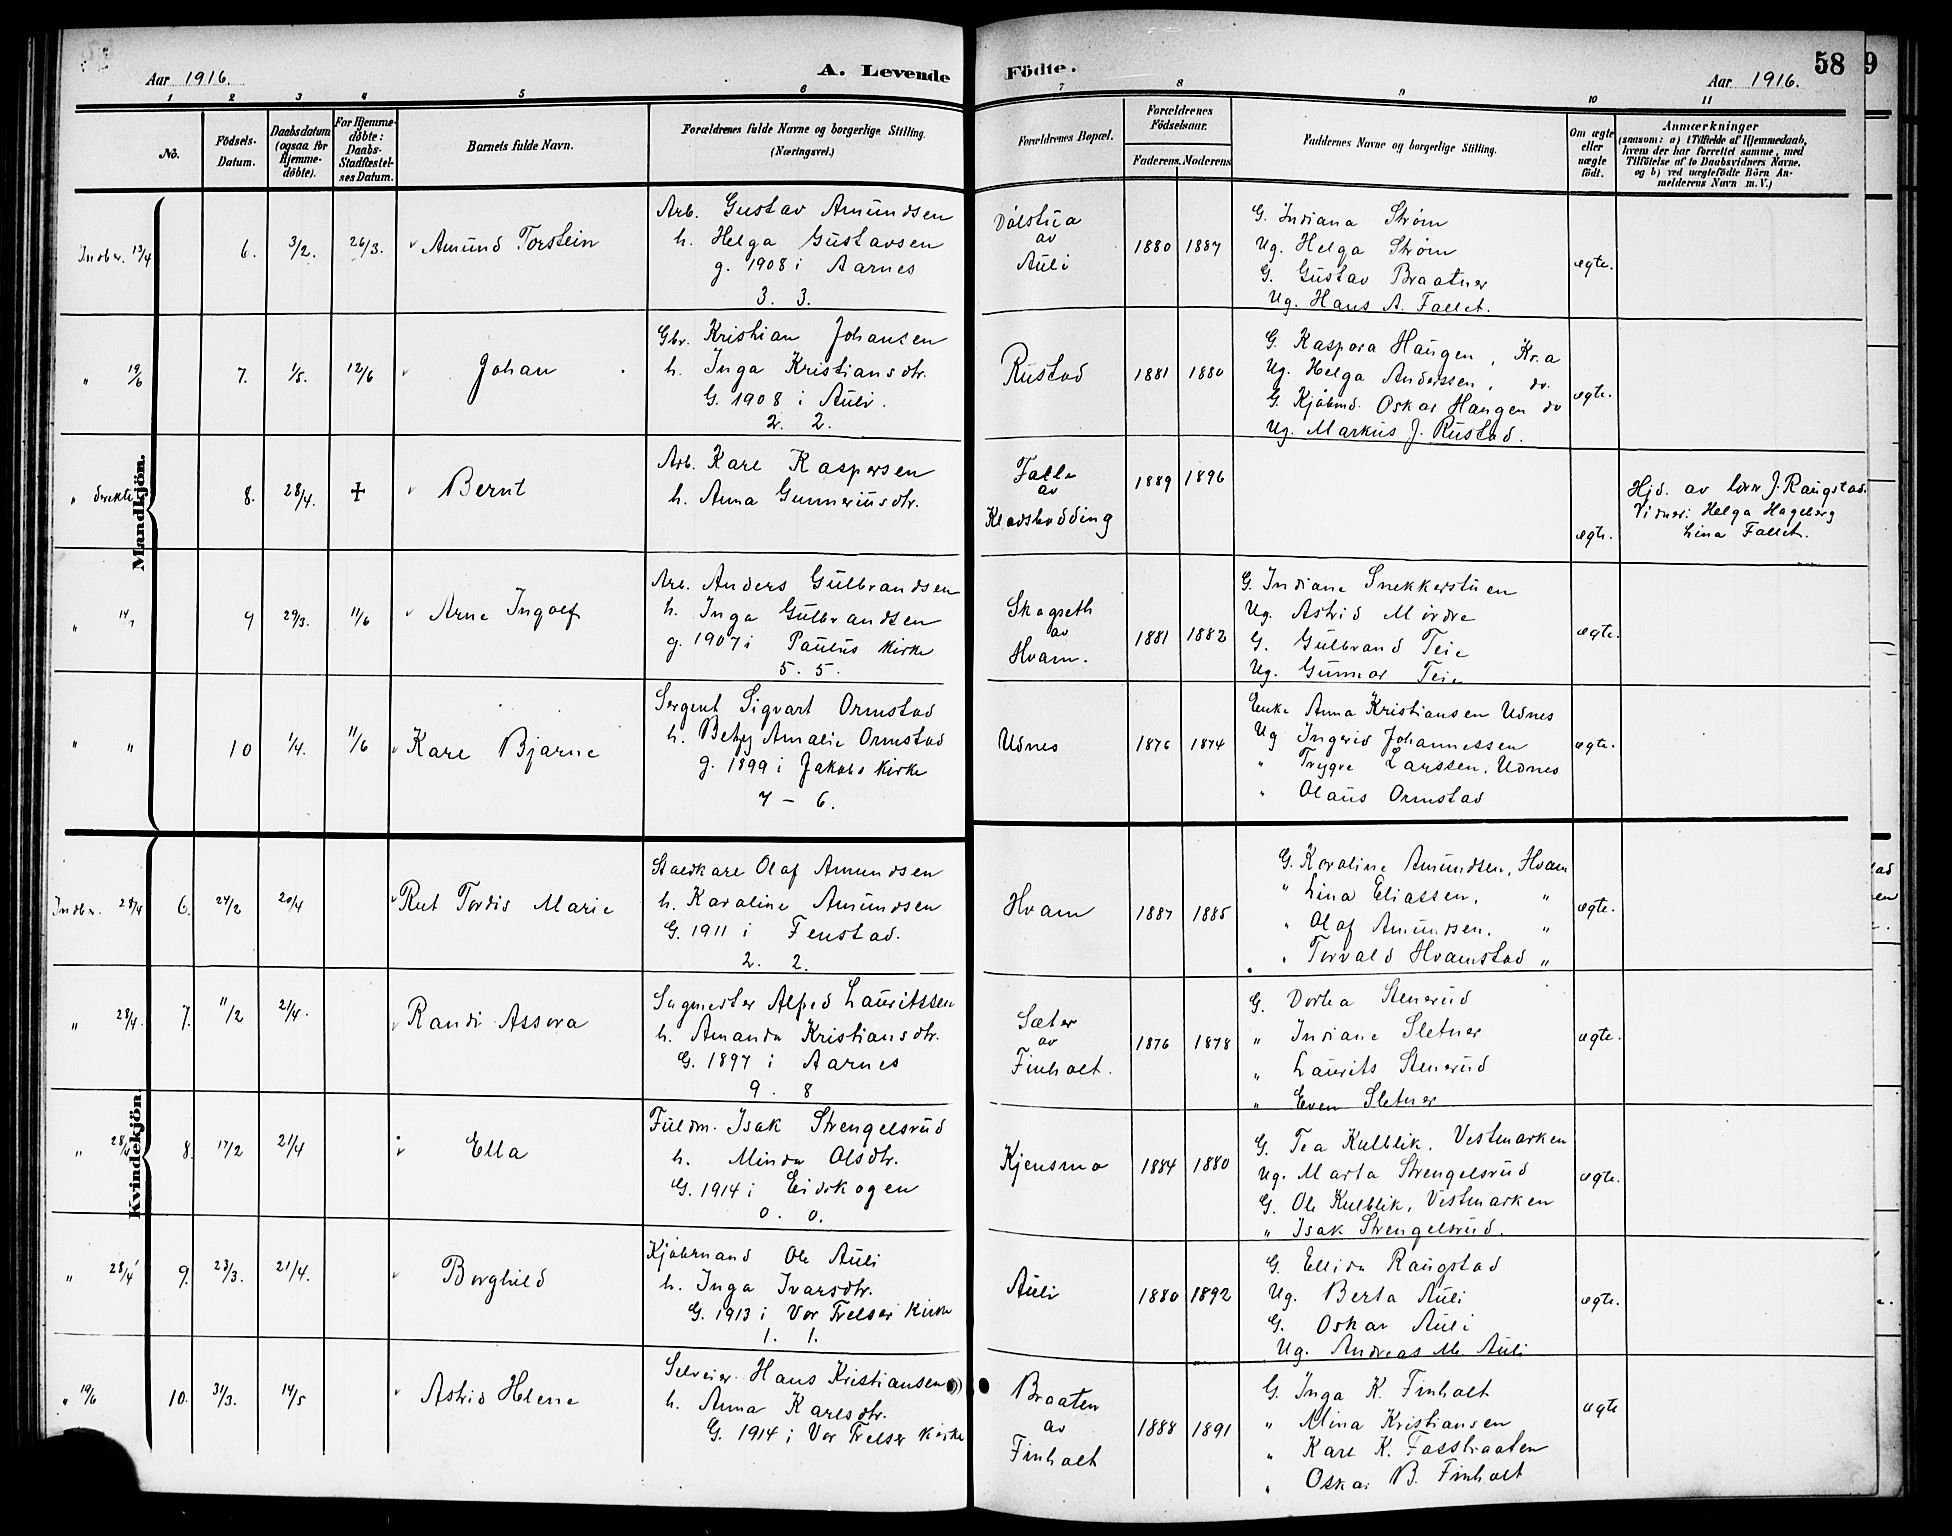 Aar 1916.
A. Levende Födte.
58
9
Aar 1916.
1 2 3 4 5 6 7 8 9 10 11
No.
Födsels-
Datum.
Daabsdatum
(ogsaa for
Hjemme-
döbte).
For Hjemme-
döbte:
Daabs-
Stadfæstel-
ses Datum.
Barnets fulde Navn.
Forældrenes fulde Navne og borgerlige Stilling.
(Næringsvei.)
Forældrenes Bopæl.
Forældrenes
Födselsaar.
Faderens. Moderens
Faddernes Navne og borgerlige Stilling.
Om ægte
eller
uægte
födt.
Anmærkninger
(saasom: a) i Tilfælde af Hjemmedaab,
hvem der har forrettet samme, med
Tilföielse af to Daabsvidners Navne,
og b) ved uægtefödte Börn An-
melderens Navn m. V.)
Mandkjön.
Indbr. 13/4 6. 3/2. 26/3. Amund Torstein
Arb. Gustav Amundsen
h. Helga Gustavsen
g. 1908 i Aarnes
3. 3.
Dølstua
av
Auli
1880 1887
G. Indiana Strøm
Ug. Helga Strøm
G. Gustav Braatner
Ug. Hans A. Fallet.
ægte.
" 19/6 7. 1/5. 12/6 Johan
Gbr. Kristian Johansen
h. Inga Kristiansdtr.
G. 1908 i Auli.
2. 2.
Rustad
1881 1880
G. Kaspara Haugen, Kr.a
Ug. Helga Anderssen, do.
G. Kjøbmd. Oskar Haugen do
Ug. Markus J. Rustad.
ægte.
" direkte 8. 28/4. + Bernt
Arb. Karl Kaspersen
h. Anna Gunneriusdtr.
Falla
av
1889 1896
ægte.
Hjd. av J. Raugstad.
Vidner: Helga Hageberg
Lina Fallet.
" 14/7 9 29/3. 11/6 Arne Ingolf
Arb. Anders Gulbrandsen
h. Inga Gulbrandsen
g. 1907 i Paulus Kirke
5. 5.
Skogseth
av
Hvam.
1881 1882
G. Indiane Snekkerstuen
Ug. Astrid Mørdre
G. Gulbrand Teie
Ug. Gunnar Teie
ægte.
" " 10 1/4. 11/6 Kare Bjarne
Sergent Sigvart Ormstad
h. Betzy Amalie Ormstad
g. 1899 i Jakobs Kirke
7 - 6.
Udnes
1876 1874
Enke Anna Kristiansen Udnes
Ug Ingerid Johannessen
" Trygve Larssen, Udnes
" Olaus Ormstad
ægte.
Kvindekjön
Indbr. 28/4 6. 24/2 20/4 Rut Tordis Marie
Staldkare Olaf Amundsen
h. Karoline Amundsen
G. 1911 i Fenstad.
2. 2.
Hvam
1887 1885
G. Karoline Amundsen, Hvam
" Lina Eliassen, "
" Olaf Amundsen. "
" Torvald Hvamstad "
ægte.
" 28/4. 7. 11/2 21/4. Randi Assora
Sagmester Alfred Lauritssen
h. Amanda Kristiansdtr.
G. 1897 i Aarnes
9. 8
Sæter
av
Finholt.
1876 1878
G. Dortea Stenerud
" Indiane Sletner
" Laurits Stenerud
" Even Sletner
ægte.
" 28/4 8. 17/2 21/4 Ella
Fuldm. Isak Strengelsrud
h. Minda Olsdtr.
G. 1914 i Eidskogen
0. 0.
Kjensmo
1884 1880
G. Tea Kulblik, Vestmarken
Ug. Marta Strengelsrud
G. Ole Kulblik, Vestmarken
" Isak Strengelsrud.
ægte.
" 28/4 9. 23/3. 21/4. Borghild
Kjøbmand Ole Auli
h. Inga Ivarsdtr.
G. 1913 i Vor Frelser Kirke
1. 1.
Auli
1880 1892
G. Ellida Raugstad
Ug. Berta Auli
G. Oskar Auli
Ug. Andreas M. Auli
ægte.
" 19/6 10. 31/3. 14/5 Astrid Helene
Selveier. Hans Kristiansen
h. Anna Karlsdtr.
G. 1914 i Vor Frelser Kirke
Braaten
av
Finholt
1888 1891
G. Inga K. Finholt
" Mina Kristiansen
" Karl K. Fossbraaten
" Oskar B. Finholt
ægte